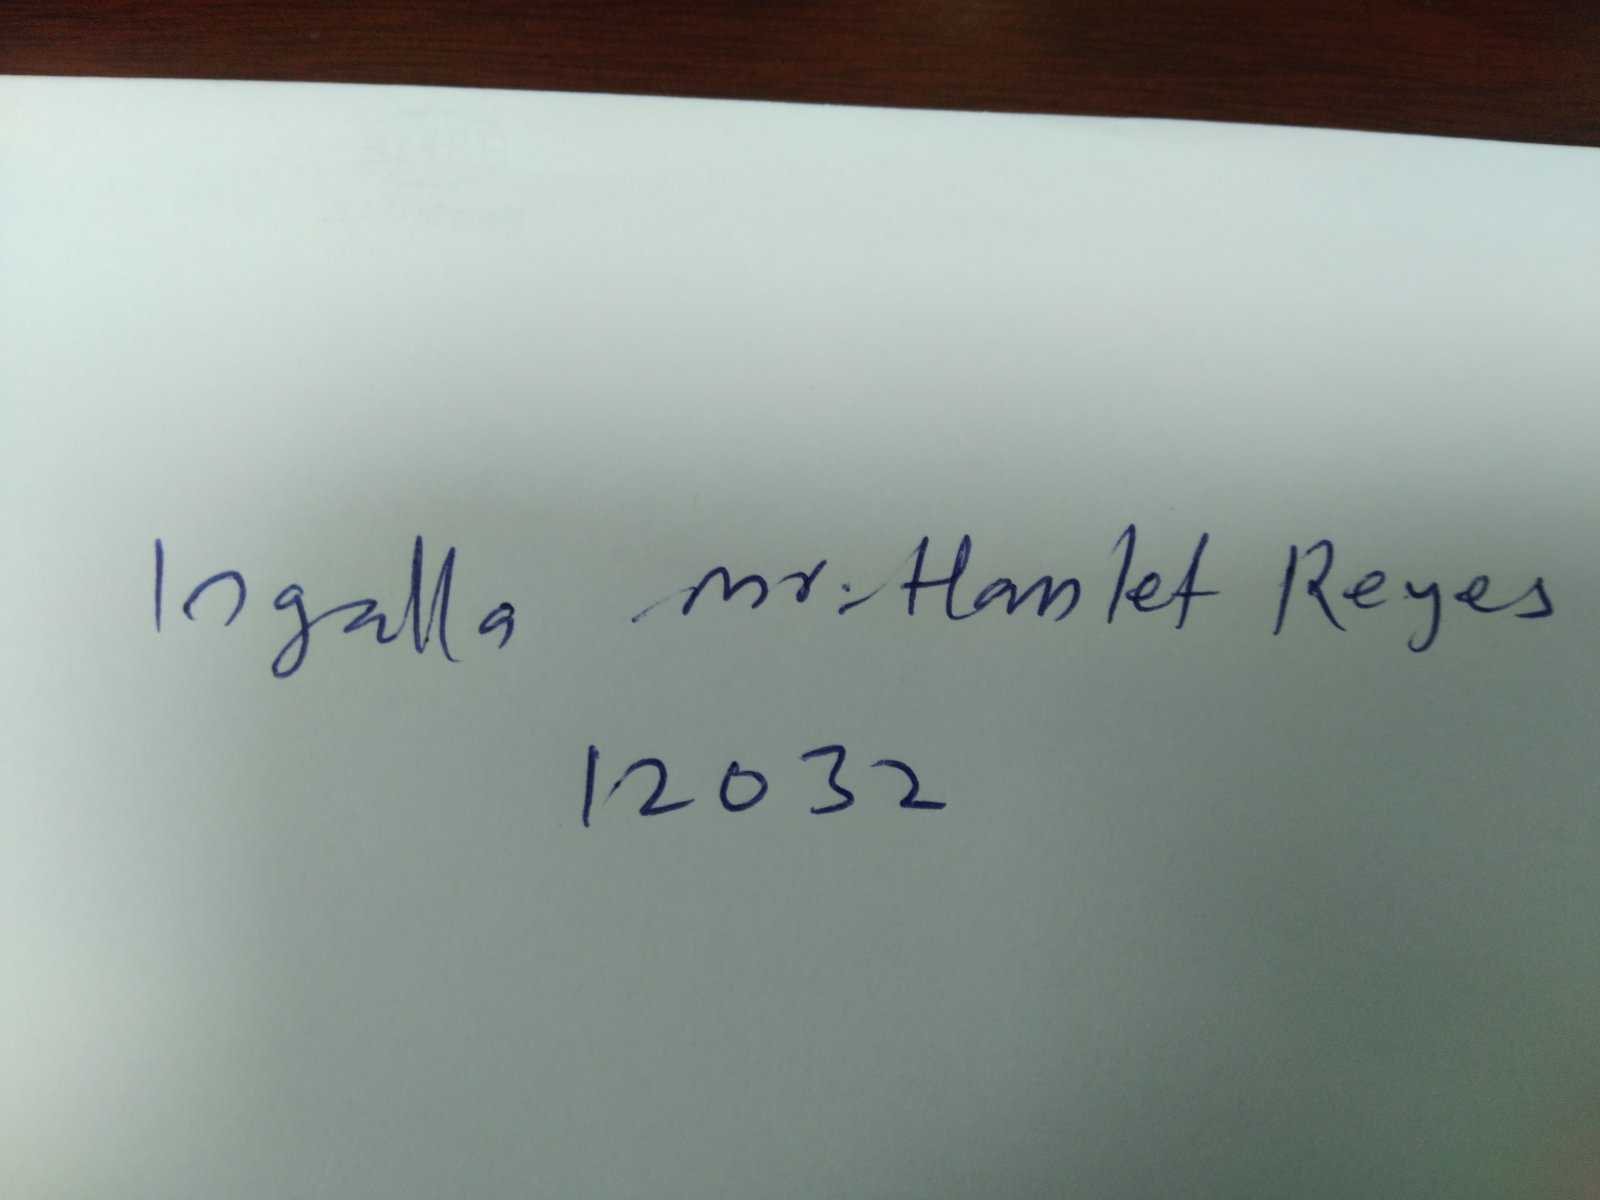 Ingalla mr. Hamlet Reyes
12032